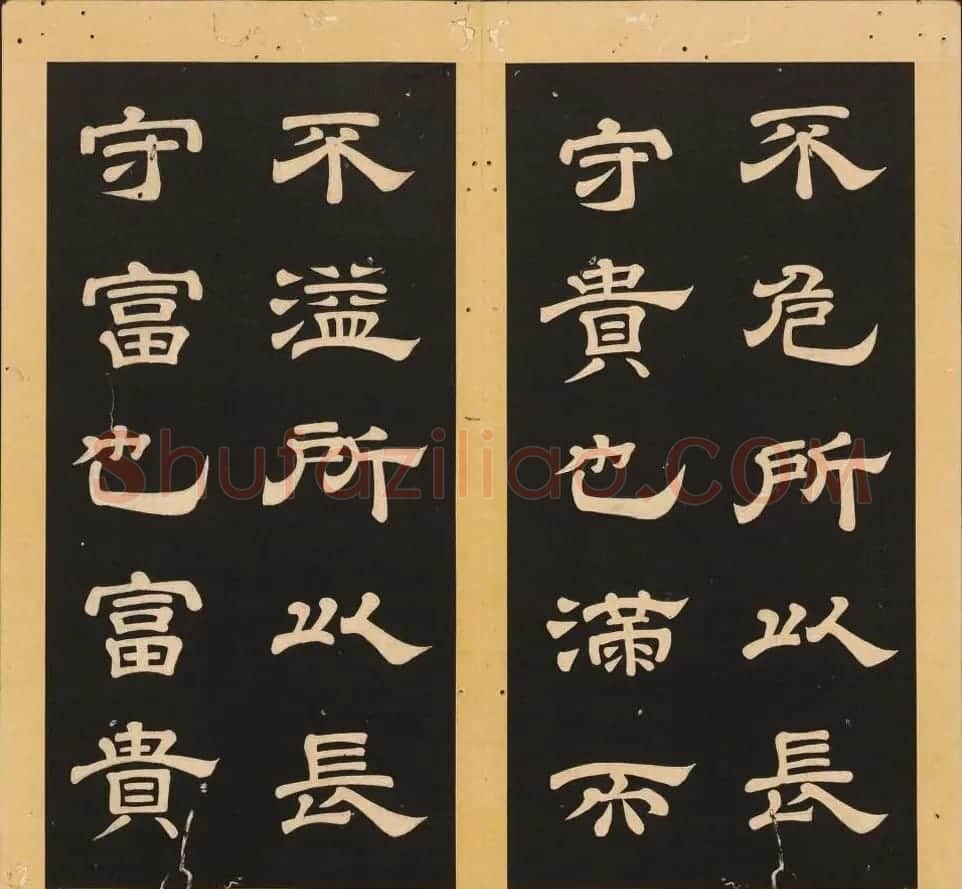 不危所以長
守貴也滿而
不溢所以長
守富也富貴
Shufaziliao.COM